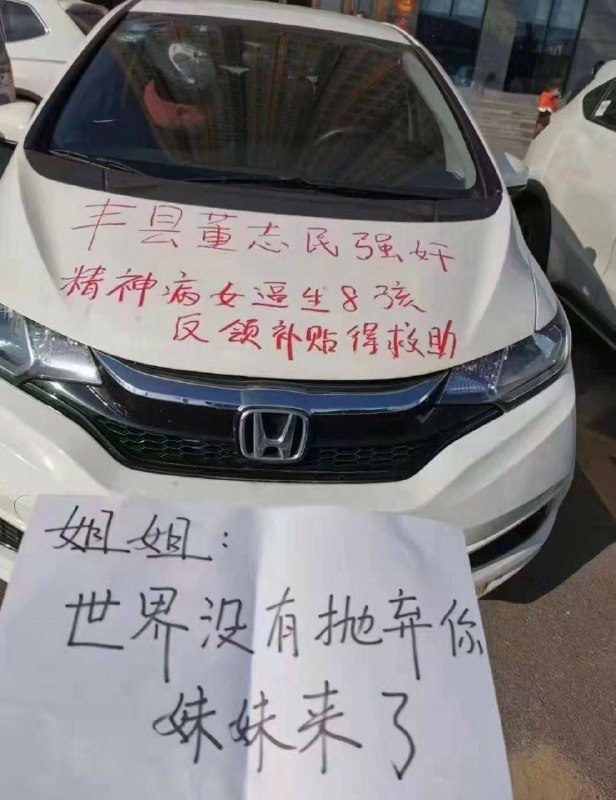 丰县董志民强奸
精神病女逼生8孩
反领补贴得救助
姐姐:
世界没有抛弃你
妹妹来了